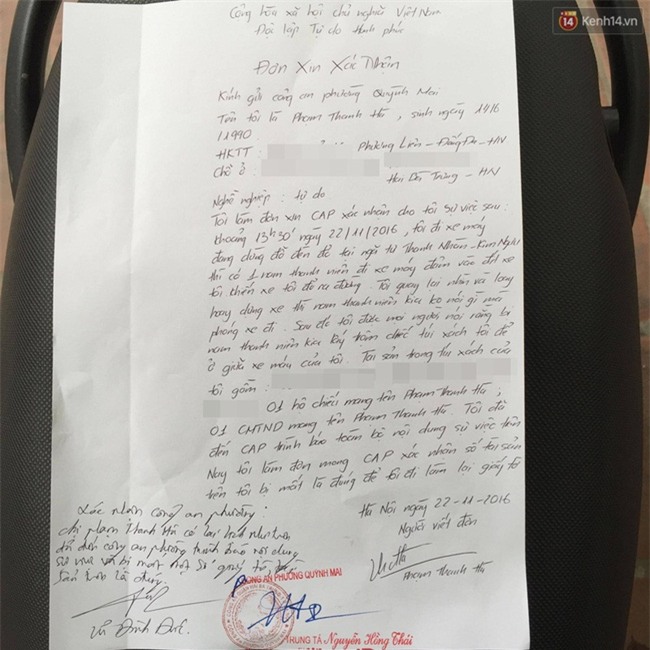 14 Kenh14.vn
Cộng hòa xã hội chủ nghĩa Việt Nam
Độc lập Tự do Hạnh phúc
Đơn Xin Xác Nhận
Kính gửi công an phường Quỳnh Mai
Tên tôi là Phạm Thanh Hà, sinh ngày 14/6
/1990
HKTT : Phương Liên - Đống Đa - HN
Chỗ ở : Hai Bà Trưng - HN
Nghề nghiệp : tự do
Tôi làm đơn xin CAP xác nhận cho tôi sự việc sau :
Khoảng 13h30' ngày 22/11/2016, tôi đi xe máy
đang dừng đỗ đèn đỏ tại ngã tư Thanh Nhàn - Kim Ngưu
thì có 1 nam thanh niên đi xe máy đâm vào đít xe
tôi khiến xe tôi đổ ra đường. Tôi quay lại nhìn và loay
hoay dựng xe thì nam thanh niên kia ko nói gì mà
phóng xe đi. Sau đó tôi được mọi người nói rằng
nam thanh niên kia lấy trộm chiếc túi xách tôi để
ở giữa xe máy của tôi. Tài sản trong túi xách của
tôi gồm :
01 hộ chiếu mang tên Phạm Thanh Hà,
01 CMTND mang tên Phạm Thanh Hà. Tôi đã
đến CAP trình báo toàn bộ nội dung sự việc trên
Nay tôi làm đơn mong CAP xác nhận số tài sản
trên tôi bị mất là đúng để tôi đi làm lại giấy tờ
Hà Nội ngày 22-11-2016
Người viết đơn
Phạm Thanh Hà
Xác nhận công an phường :
chị Phạm Thanh Hà có
đã đến công an phường trình báo nội dung
sự việc và bị mất một số giấy tờ
trên là đúng.
Vũ Đình Đức.
CÔNG AN PHƯỜNG QUỲNH MAI
TRUNG TÁ Nguyễn Hồng Thái